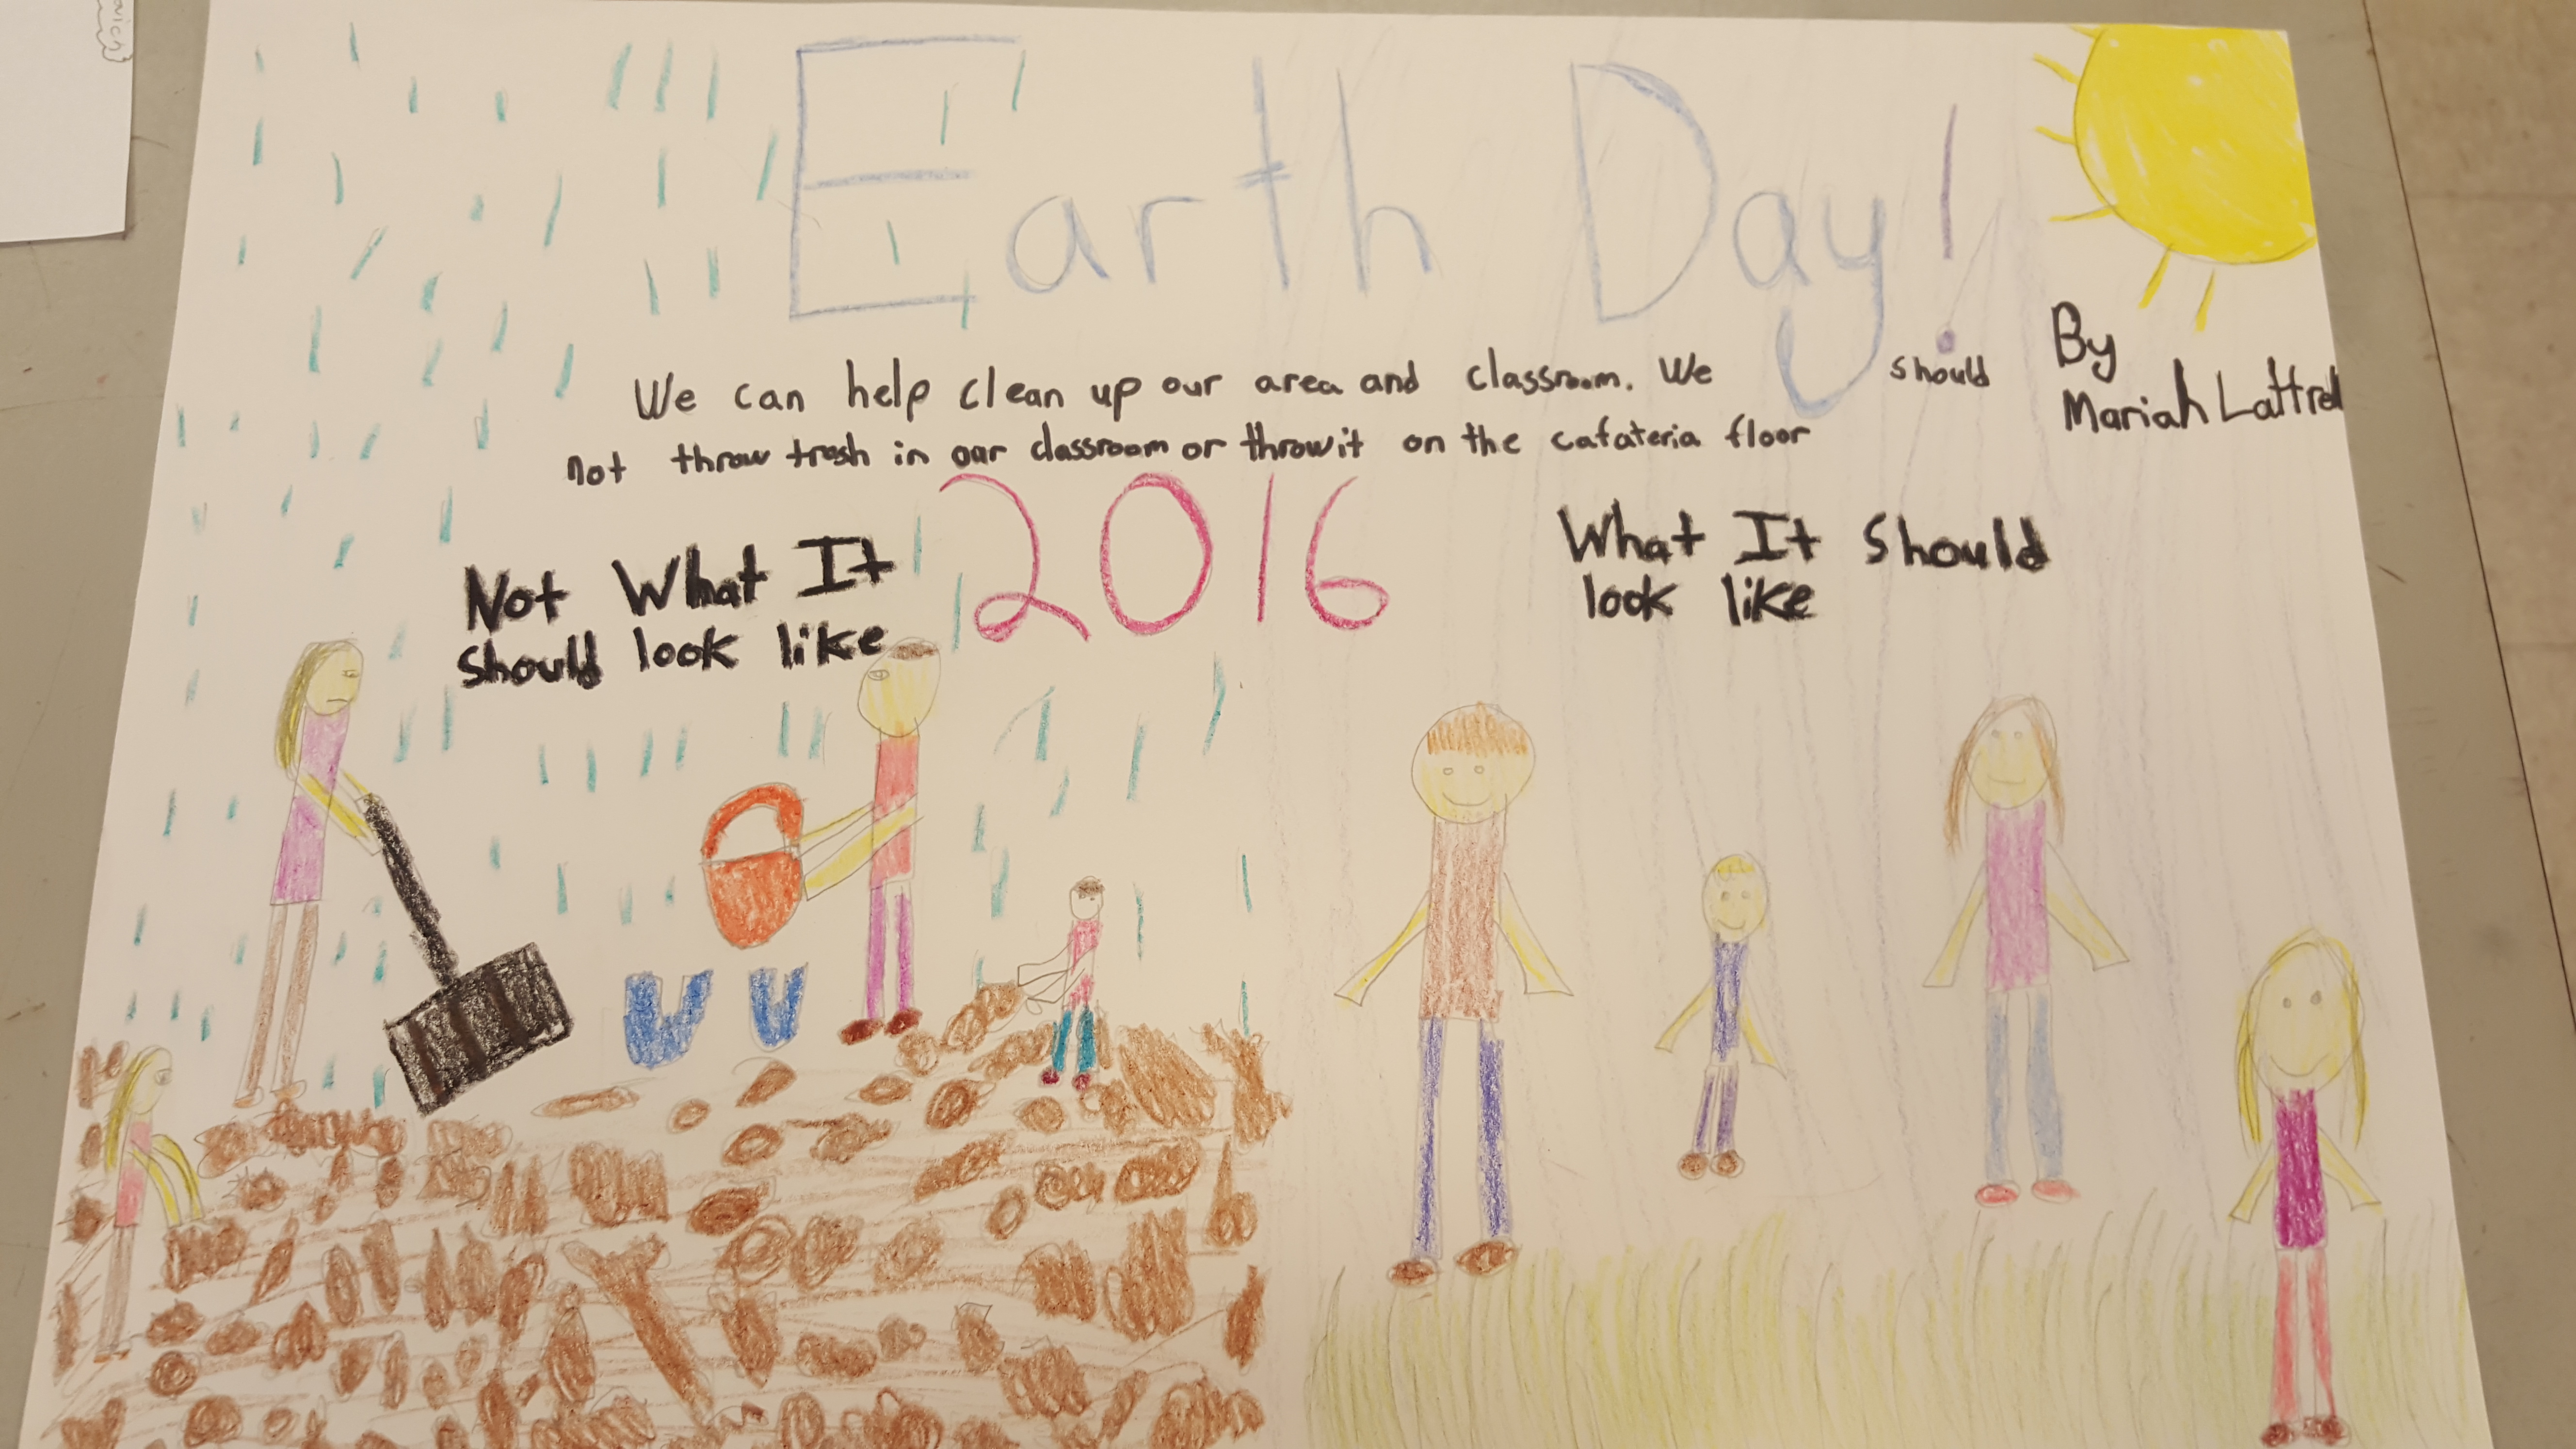 Earth Day!
We can help clean up our area and classroom. We should
not throw trash in our classroom or throw it on the cafateria floor
By
Mariah Lattrell
2016
Not What It
should look like
What It Should
look like